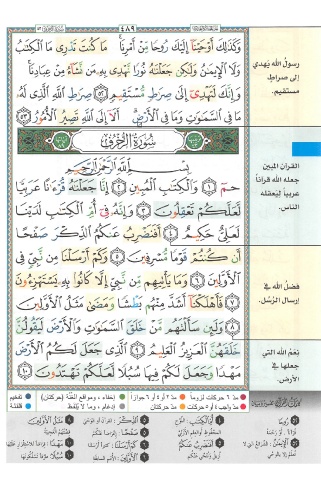 ٤٨٩
وَكَذَٰلِكَ أَوْحَيْنَآ إِلَيْكَ رُوحًا مِّنْ أَمْرِنَا ۚ مَا كُنتَ تَدْرِى مَا ٱلْكِتَٰبُ
وَلَا ٱلْإِيمَٰنُ وَلَٰكِن جَعَلْنَٰهُ نُورًا نَّهْدِى بِهِۦ مَن نَّشَآءُ مِنْ عِبَادِنَا ۚ
وَإِنَّكَ لَتَهْدِىٓ إِلَىٰ صِرَٰطٍ مُّسْتَقِيمٍ ٥٢ صِرَٰطِ ٱللَّهِ ٱلَّذِى لَهُۥ
مَا فِى ٱلسَّمَٰوَٰتِ وَمَا فِى ٱلْأَرْضِ ۗ أَلَآ إِلَى ٱللَّهِ تَصِيرُ ٱلْأُمُورُ ٥٣
سُورَةُ الزُّخْرُفِ
بِسْمِ ٱللَّهِ ٱلرَّحْمَٰنِ ٱلرَّحِيمِ
حمٓ ١ وَٱلْكِتَٰبِ ٱلْمُبِينِ ٢ إِنَّا جَعَلْنَٰهُ قُرْءَٰنًا عَرَبِيًّا
لَّعَلَّكُمْ تَعْقِلُونَ ٣ وَإِنَّهُۥ فِىٓ أُمِّ ٱلْكِتَٰبِ لَدَيْنَا
لَعَلِىٌّ حَكِيمٌ ٤ أَفَنَضْرِبُ عَنكُمُ ٱلذِّكْرَ صَفْحًا
أَن كُنتُمْ قَوْمًا مُّسْرِفِينَ ٥ وَكَمْ أَرْسَلْنَا مِن نَّبِىٍّ فِى
ٱلْأَوَّلِينَ ٦ وَمَا يَأْتِيهِم مِّن نَّبِىٍّ إِلَّا كَانُوا۟ بِهِۦ يَسْتَهْزِءُونَ
٧ فَأَهْلَكْنَآ أَشَدَّ مِنْهُم بَطْشًا وَمَضَىٰ مَثَلُ ٱلْأَوَّلِينَ
٨ وَلَئِن سَأَلْتَهُم مَّنْ خَلَقَ ٱلسَّمَٰوَٰتِ وَٱلْأَرْضَ لَيَقُولُنَّ
خَلَقَهُنَّ ٱلْعَزِيزُ ٱلْعَلِيمُ ٩ ٱلَّذِى جَعَلَ لَكُمُ ٱلْأَرْضَ
مَهْدًا وَجَعَلَ لَكُمْ فِيهَا سُبُلًا لَّعَلَّكُمْ تَهْتَدُونَ ١٠
رسولُ الله يَهدي
إلى صراطٍ
مستقيم.
القرآن المبين
جعله الله قرآناً
عربياً ليَعقله
الناس.
فضلُ الله في
إرسال الرُسُل.
نِعَمُ الله التي
جعلها في
الأرض.